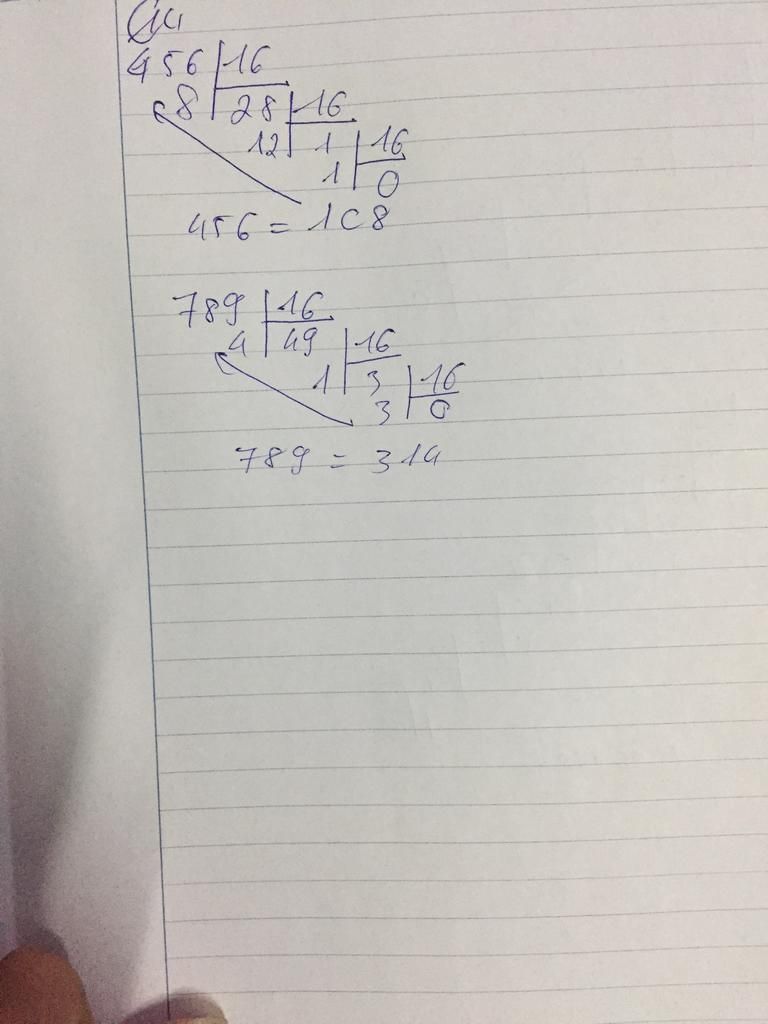 456 16
8 28 16
12 1 16
1 0
456 = 1C8
789 16
4 49 16
1 3 16
3 0
789 = 314